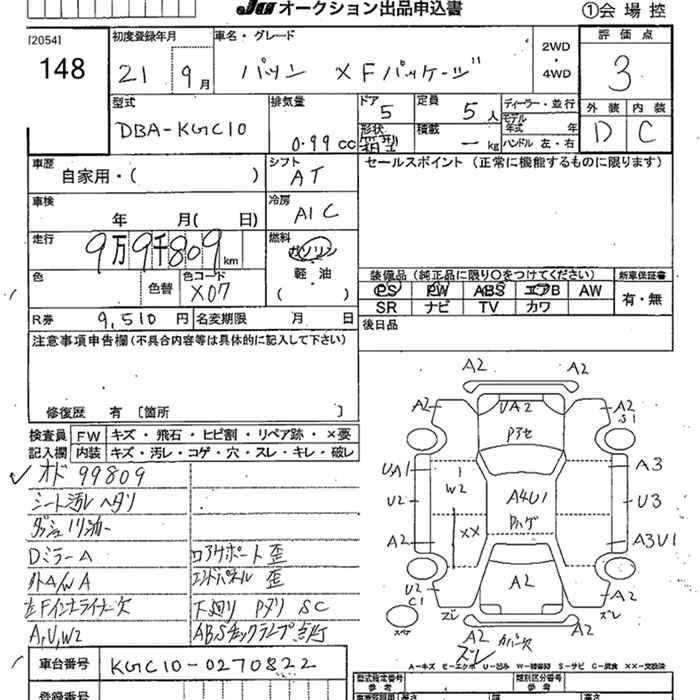 JU オークション出品申込書
①会場控
[2054]
148
初度登録年月
21 9月
車名・グレード
パッソ XFパッケージ
2WD
・
4WD
評価点
3
型式
DBA-KGC10
排気量
0.99 cc
ドア
5
定員
5人
形状
箱型
積載
ー kg
ディーラー・並行
モデル
年式 年
ハンドル 左・右
外装 内装
D C
車歴
自家用・( )
シフト
AT
セールスポイント (正常に機能するものに限ります)
車検
年 月( 日)
冷房
A/C
走行
9万9千809km
燃料
ガソリン
軽・油
( )
色
色替
色コード
X07
装備品 (純正品に限り○をつけてください)
PS PW ABS エアB AW
SR ナビ TV カワ
新車保証書
有・無
R券
9,510円
名変期限 月 日
後日品
注意事項申告欄(不具合内容等は具体的に記入して下さい)
修復歴 有 [箇所 ]
検査員
記入欄
FW キズ・飛石・ヒビ割・リペア跡・×要
内装 キズ・汚レ・コゲ・穴・スレ・キレ・破レ
オド 99809
シート汚レ ヘタリ
Dミラー A
コアサポート 歪
外A/W A
エンドパネル 歪
左Fインナーライナー欠
下廻り Pヌリ SC
A,U,W2
ABSチェックランプ点灯
A2 A2
A2 UA2 A2
S1
Pアセ
UA1 A3
W2
U2 A4U1 U3
XX Pハゲ
A2 A3U1
U2 A2 A2
C1
ズレ ズレ
スペア
A2 A2
カバー欠
ズレ
A-キズ E-エクボ U-凹み W-補修跡 S-サビ C-腐食 XX-交換済
車台番号
KGC10-0270822
型式指定番号
参考
類別区分番号
参考
登録番号